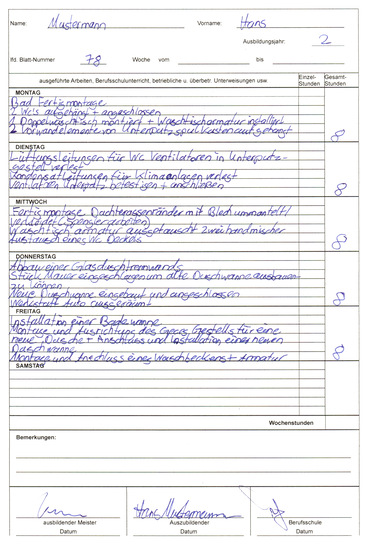 Name: Mustermann Vorname: Hans
Ausbildungsjahr: 2
lfd. Blatt-Nummer 78 Woche vom bis
ausgeführte Arbeiten, Berufsschulunterricht, betriebliche u. überbetr. Unterweisungen usw. Einzel-Stunden Gesamt-Stunden
MONTAG
Bad Fertigmontage
2 Wc's aufgehängt + angeschlossen
1 Doppelwaschtisch montiert + Waschtischarmatur installiert
2 Vorwandelemente von Unterputzspülkasten aufgehängt 8
DIENSTAG
Lüftungsleitungen für Wc Ventilatoren in Unterputz-
gestell verlegt
Kondensatleitungen für Klimaanlagen verlegt
Ventilatoren Unterputz befestigen + anschließen 8
MITTWOCH
Fertigmontage Dachterrassenränder mit Blech ummantelt/
verkleidet (Spenglerarbeiten)
Waschtisch armatur ausgetauscht zweihandmischer
Austausch eines Wc Deckels 8
DONNERSTAG
Abbau einer Glasduschtrennwand
Stück Mauer eingeschlagen um alte Duschwanne ausbauen
zu können
Neue Duschwanne eingebaut und angeschlossen
Werkstatt Auto ausgeräumt 8
FREITAG
Installation einer Badewanne
Montage und Ausrichtung des Gestells für eine
neue Dusche + Anschluss und Installation einer neuen
Duschwanne
Montage und Anschluss eines Waschbeckens + Armatur 8
SAMSTAG
Wochenstunden
Bemerkungen:
Hans Mustermann
ausbildender Meister Auszubildender Berufsschule
Datum Datum Datum